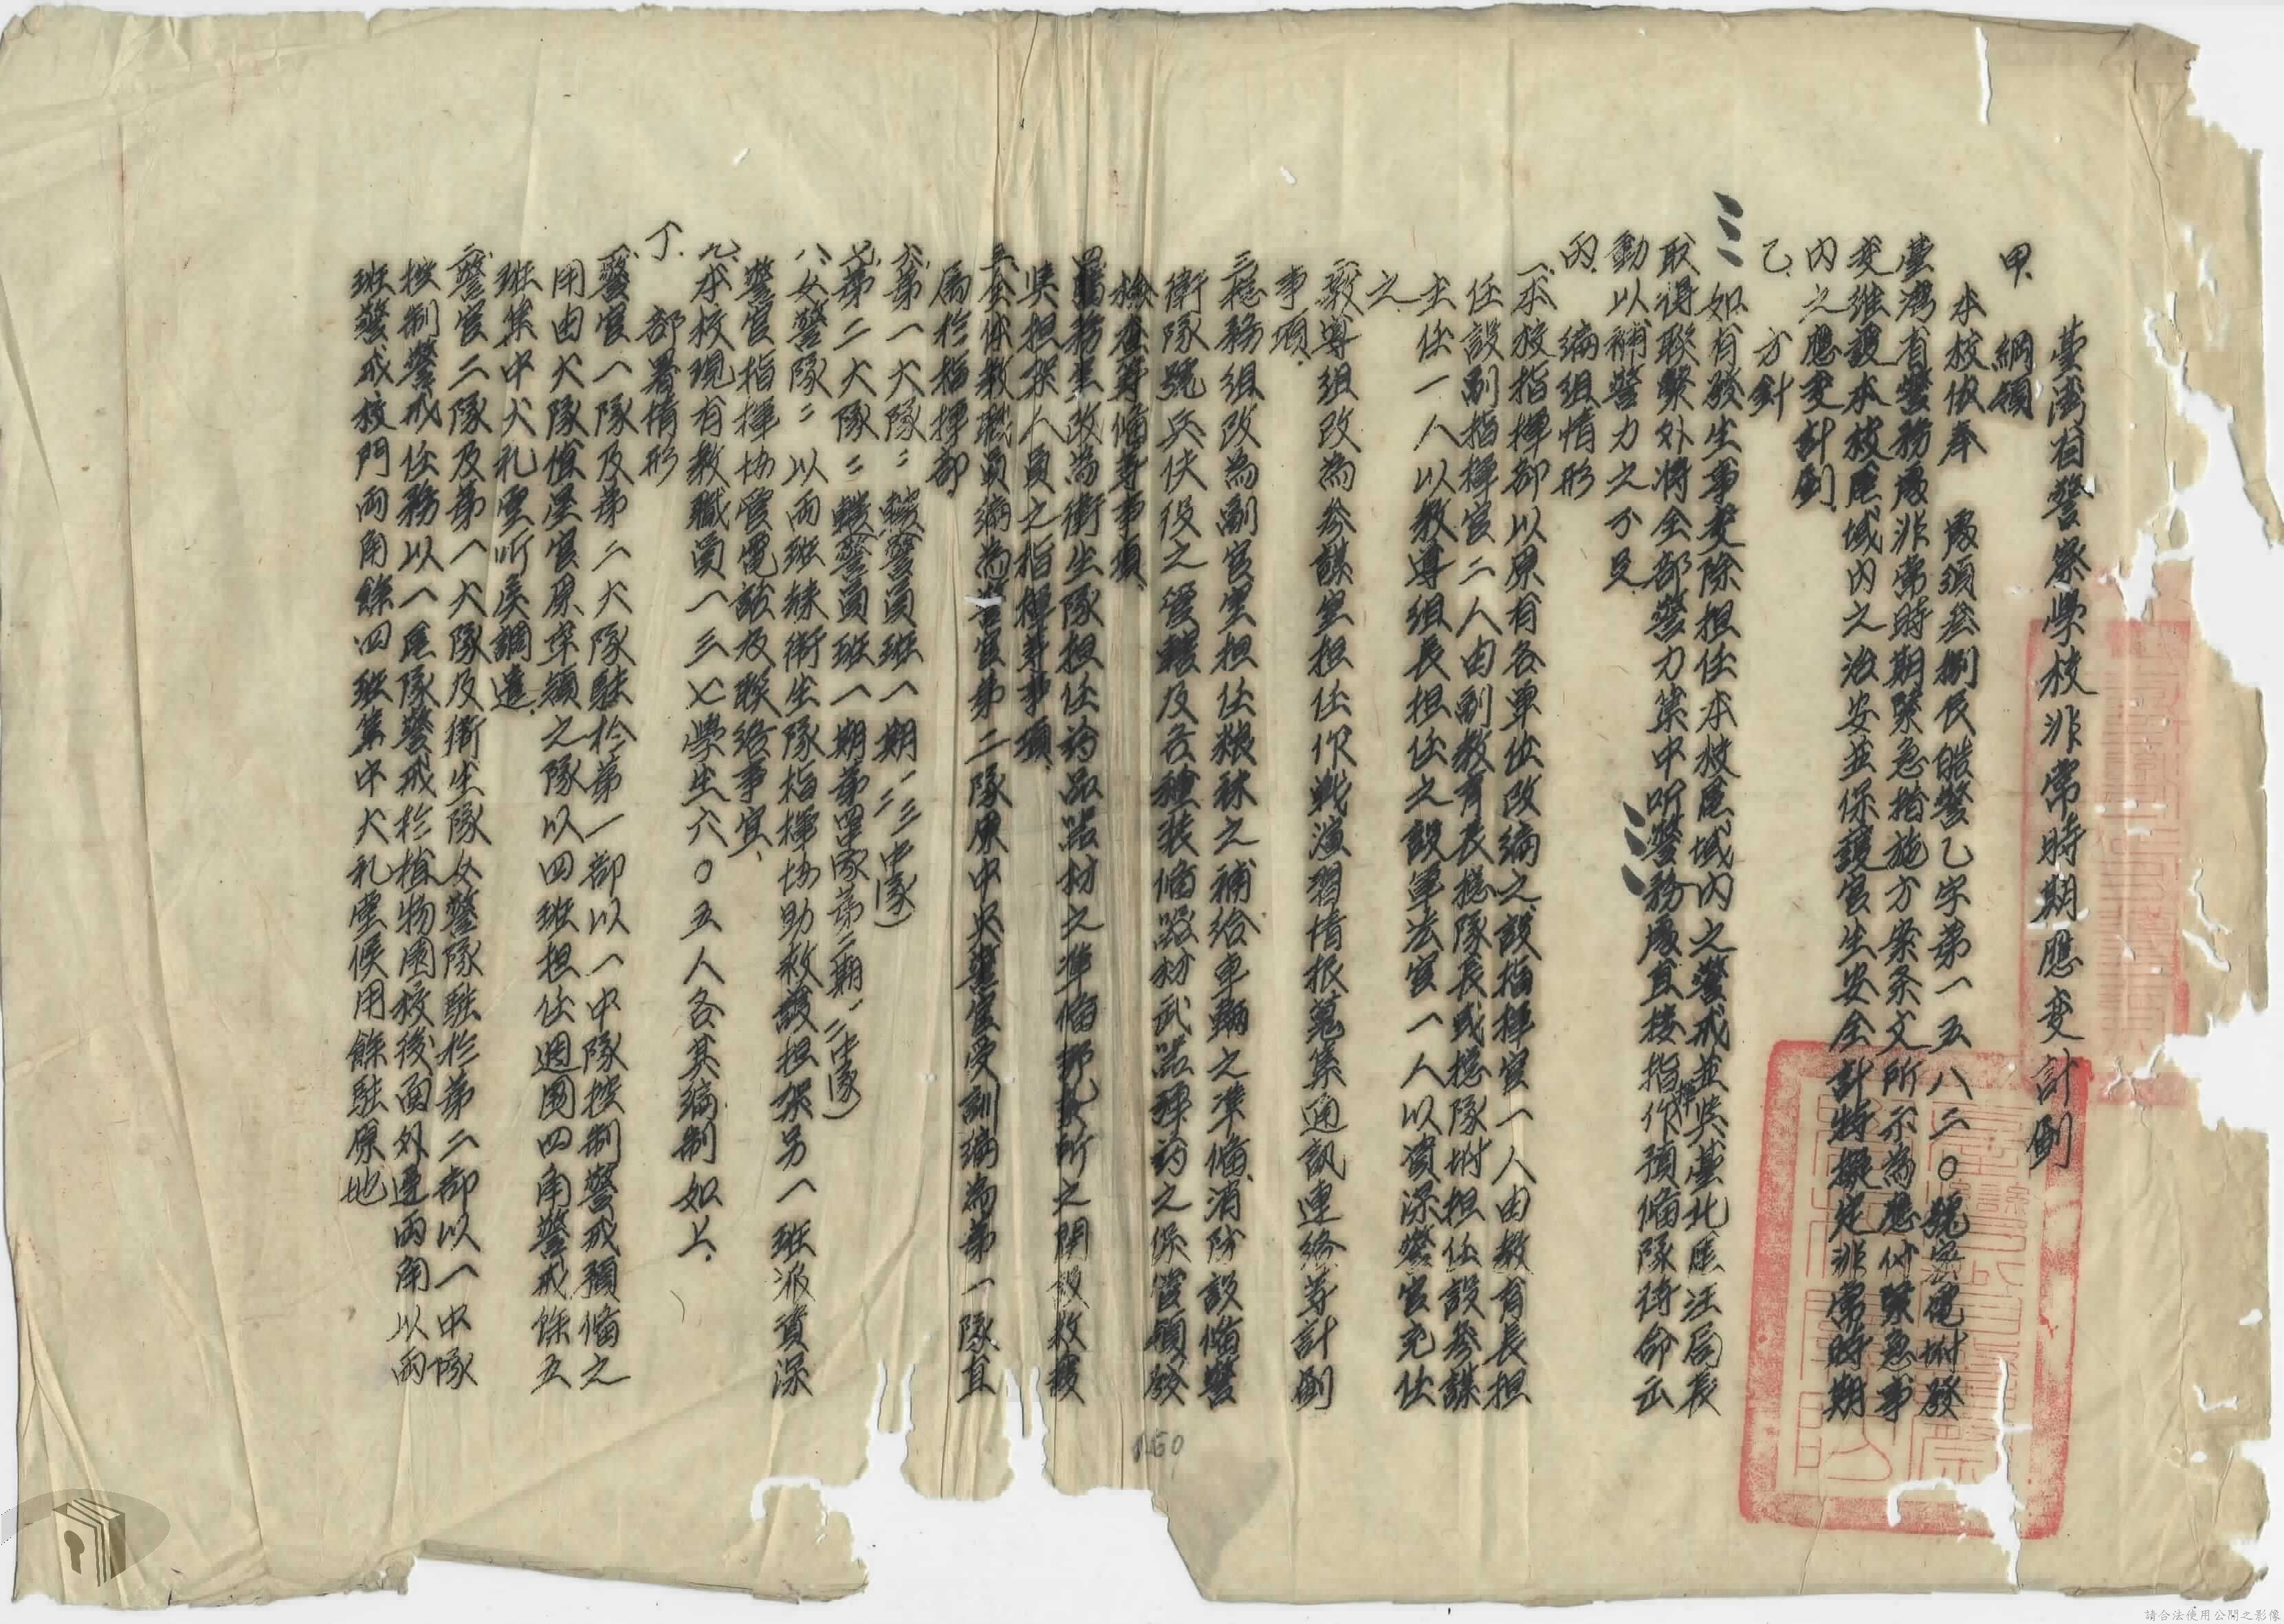 臺灣省警察學校非常時期應变計劃
甲、綱領
本校依奉 處須叁捌辰皓警乙字第一五八二〇號密電附發
臺灣省警務處非常時期緊急措施方案条文所示為應付緊急事
变維護本校區域內之治安並保護官生安全計特擬定非常時期
內之應变計劃
乙、方針
如有發生事变除担任本校區域內之警戒並與臺北區汪局長
取得聯繫外將全部警力集中听警務處直接指揮作預備隊待命出
動以補警力之不足
丙、編組情形
一、本校指揮部以原有各單位改編之設指揮官一人由教育長担
任設副指揮官二人由副教育長總隊長或總隊附担任設參謀
主任一人以教導組長担任之設軍法官一人以資深警官充任
之
二、教導組改為參謀室担任作戰演習情报蒐集通訊連絡等計劃
事項
三、總務組改為副官室担任粮秣之補給車輛之準備消防設備警
衛隊號兵伕役之管轄及各種裝備器材武器彈药之保管領發
檢查等備等事項
四、醫務室改為衛生隊担任药品器材之準備 所之開設救護
與担架人員之指揮等事項
五、全体教職員編為警官第二隊原中央警官受訓編為第一隊直
屬於指揮部
六、第一大隊：轄警員班一期（一二三中隊）
七、第二大隊：轄警員班一期第四隊第二期（一二中隊）
八、女警隊：以兩班綠衛生隊指揮協助救護担架另一班派資深
警官指揮協管電話及聯絡事宜、
九、本校現有教職員一三七學生六〇五人各其編制如上、
丁、部署情形
一、警官一隊及第二大隊駐於第一部以一中隊控制警戒預備之
用由大隊值星官原率領之隊以四班担任週圍四角警戒餘五
班集中大礼堂听候調遣
二、警官二隊及第一大隊及衛生隊女警隊駐於第二部以一中隊
控制警戒任務以一區隊警戒於植物園校後面外邊兩角以兩
班警戒校門兩角餘四班集中大礼堂候用餘駐原地
160
請合法使用公開之影像